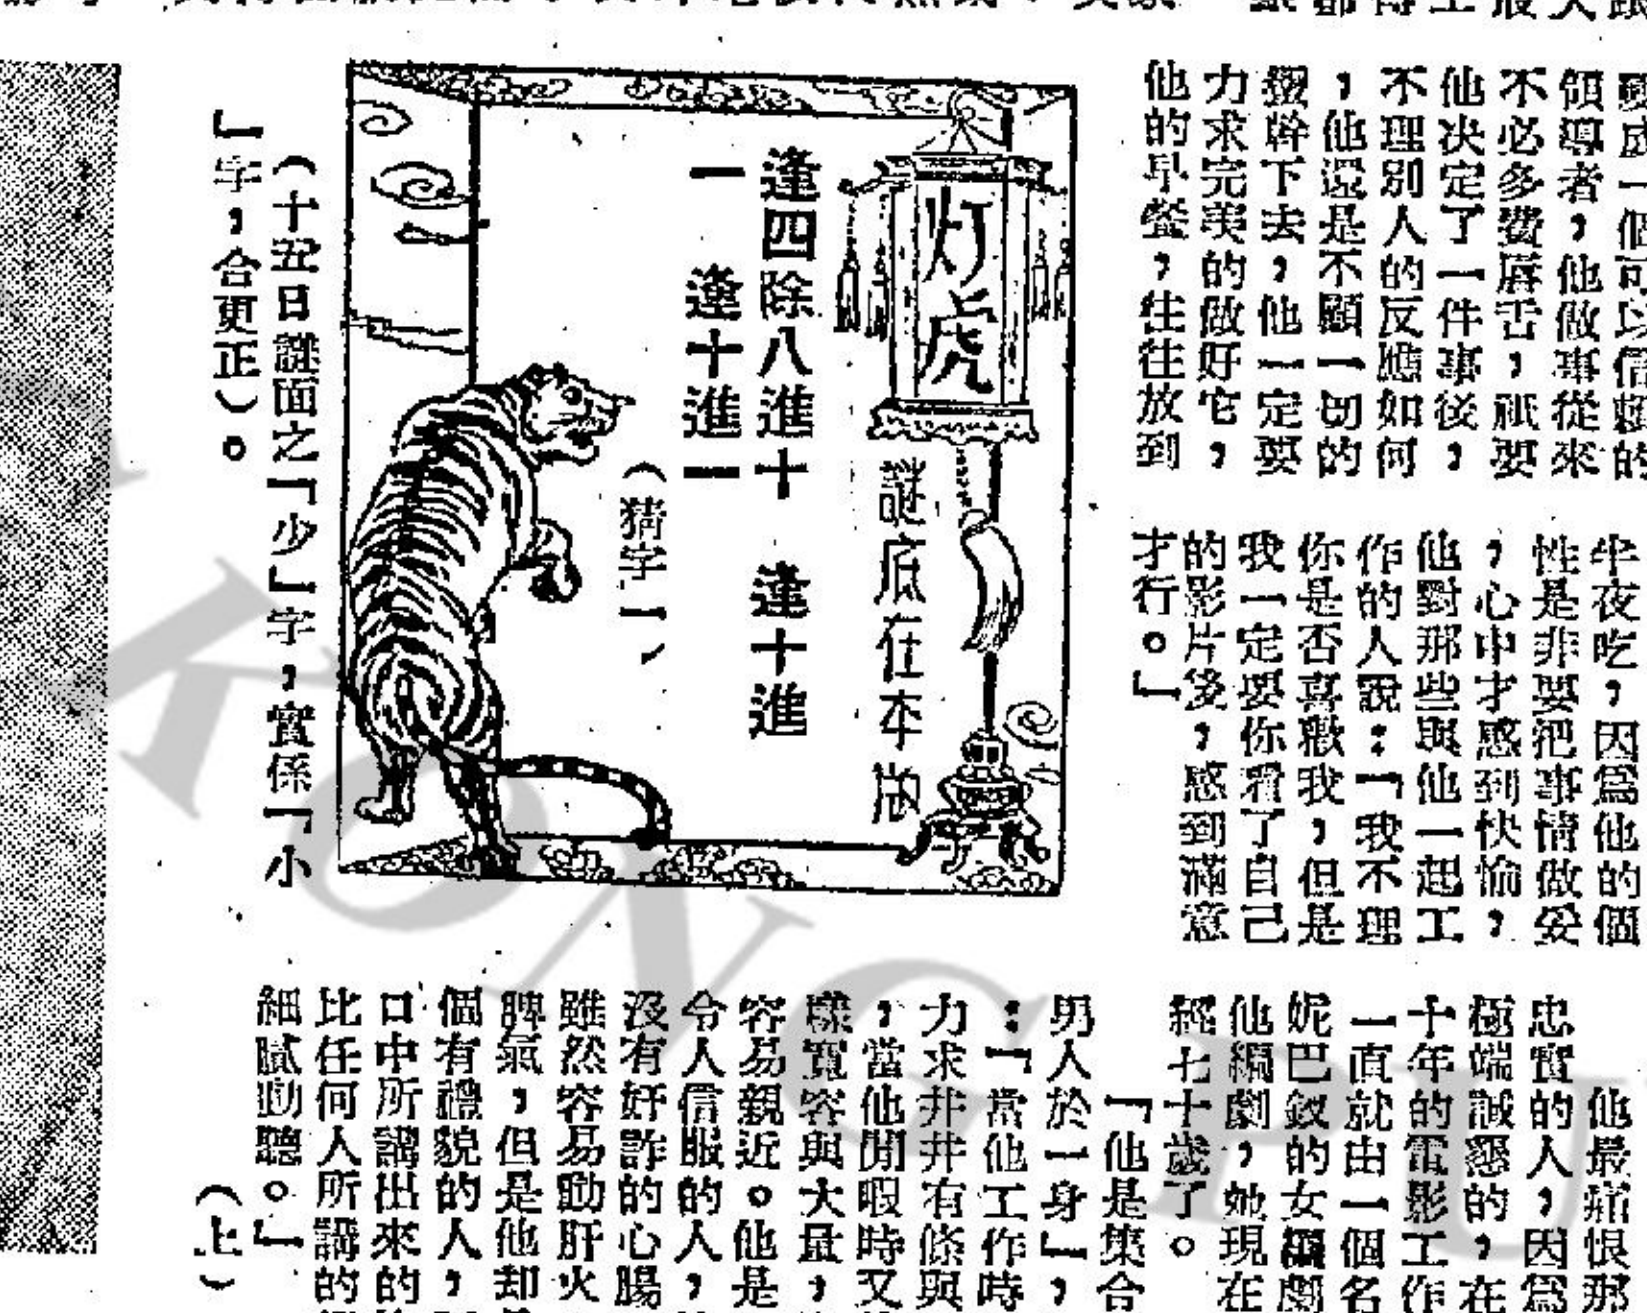 領導者，他做事從來
不必多費唇舌，祇要
他决定了一件事後，
不理別人的反應如何
，他還是不顧一切的
幹下去，他一定要
力求完美的做好它，
他的早餐，往往放到
半夜吃，因爲他的個
性是非要把事情做妥
，心中才感到快愉，
他對那些與他一起工
作的人說：「我不理
你是否喜歡我，但是
我一定要你看了自己
的影片後，感到滿意
才行。」
灯虎
謎底在本版
逢四除八進十　逢十進
一　逢十進一
（猜字一）
（十五日謎面之「少」字，實係「小
」字，合更正）。
他最痛恨那
忠實的人，因爲
極端誠懇的，在
十年的電影工作
一直就由一個名
妮巴敘的女編劇
他編劇，她現在
經七十歲了。
「他是集合
男人於一身」，
：「當他工作時
力求井井有條與
，當他閒暇時又
樣寬容與大量，
容易親近。他是
令人信服的人，
沒有奸詐的心腸
雖然容易動肝火
脾氣，但是他却
個有禮貌的人，
口中所講出來的
比任何人所講的
細膩動聽。」
（上）
KONG PU